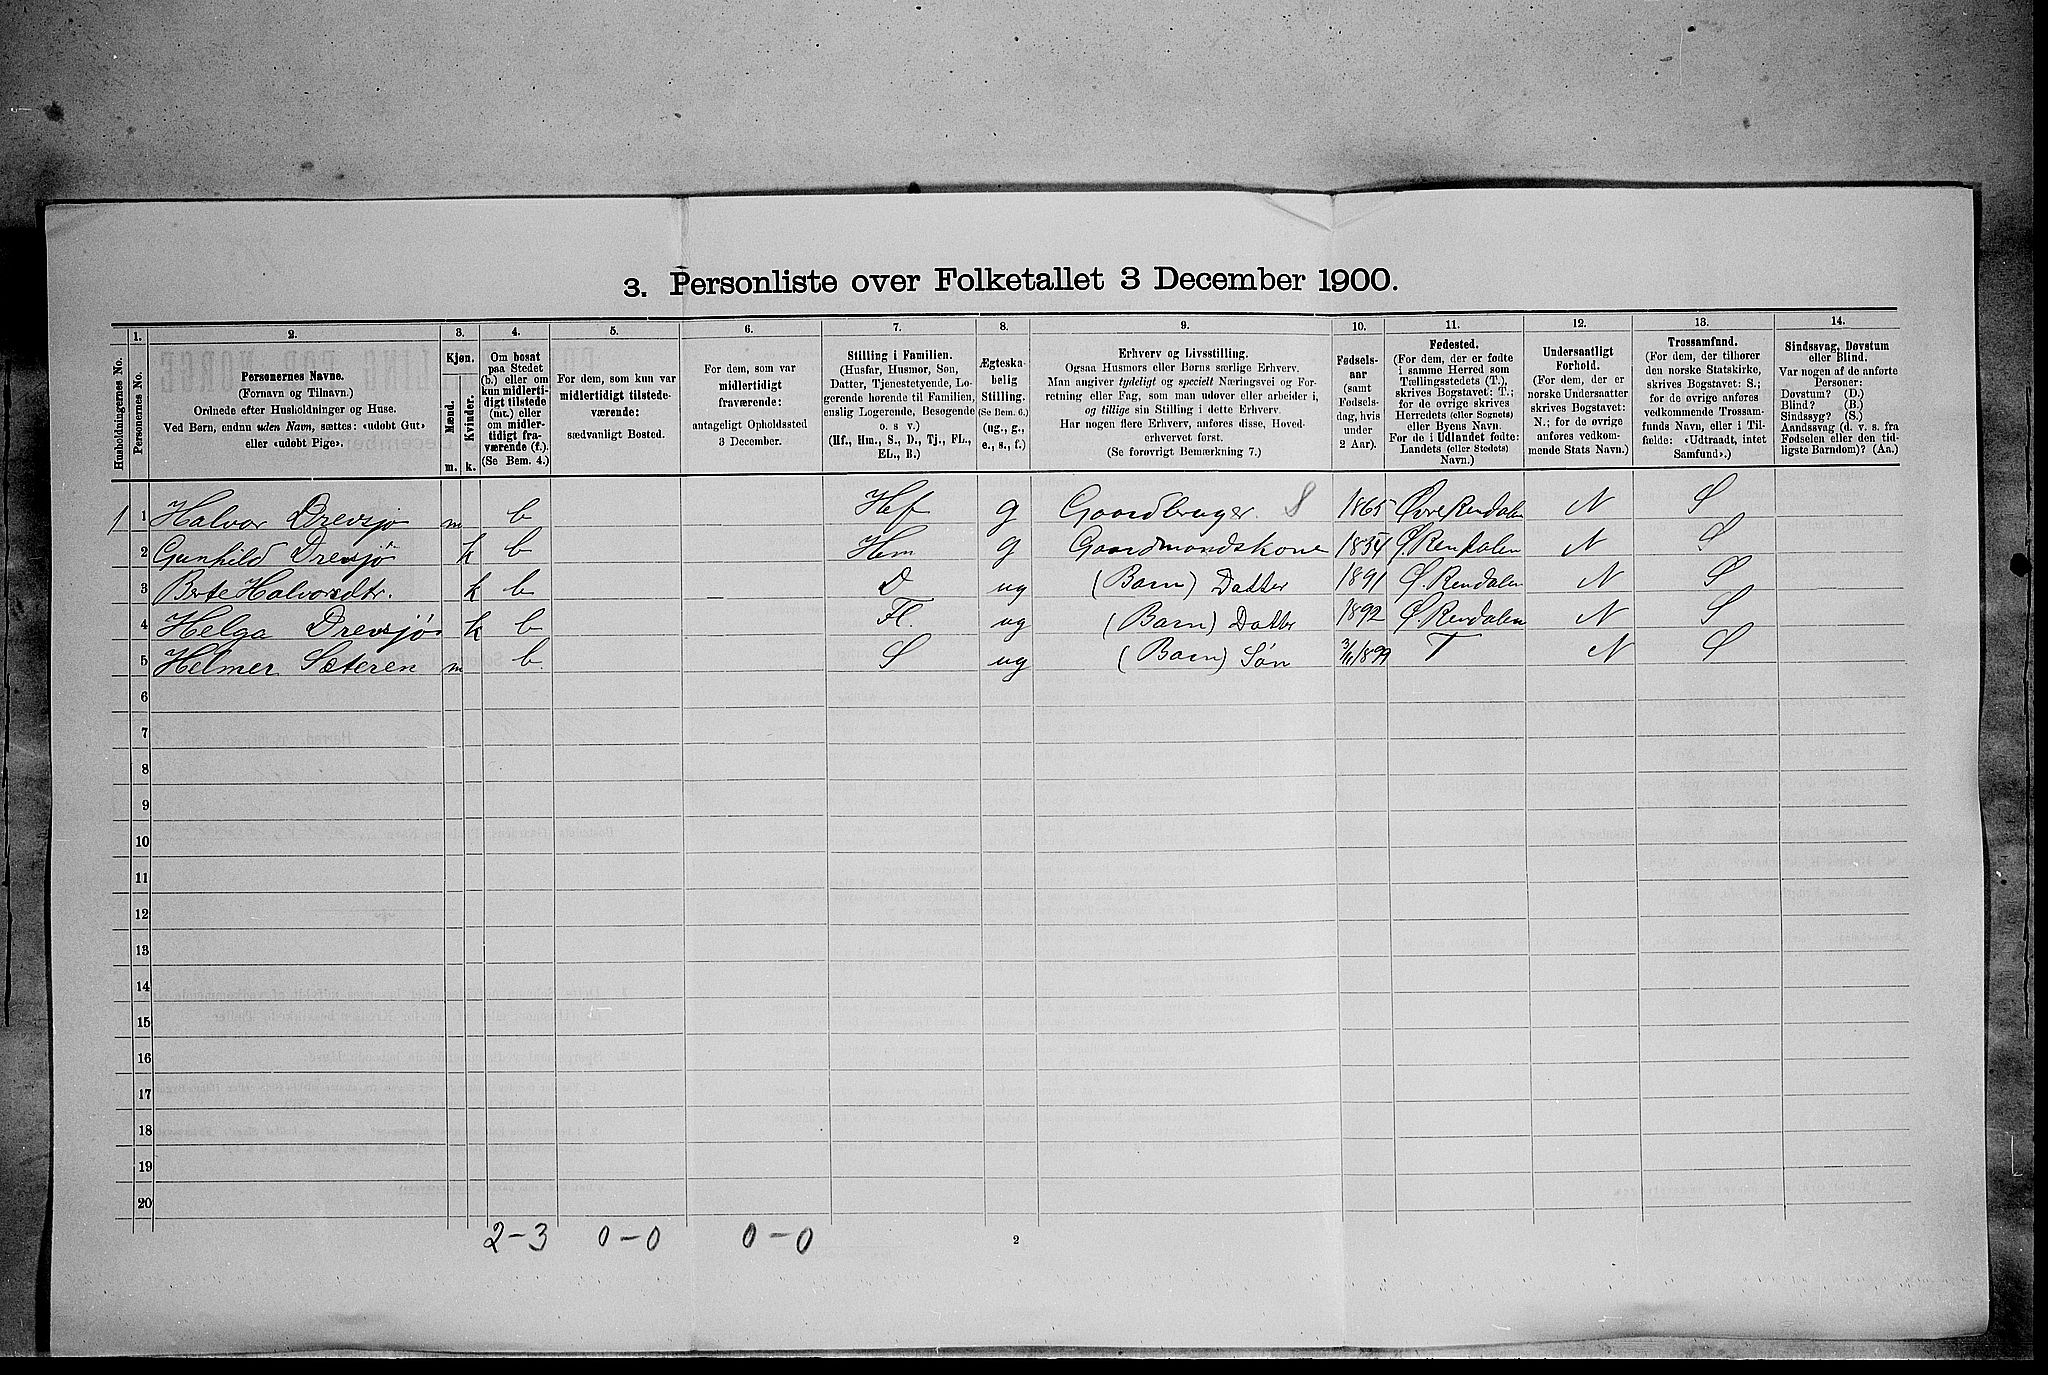 3. Personliste over Folketallet 3 December 1900.
1. 2. 3. 4. 5. 6. 7. 8. 9. 10. 11. 12. 13. 14.
Husholdningernes No.
Personernes No.
Personernes Navne.
(Fornavn og Tilnavn.)
Ordnede efter Husholdninger og Huse.
Ved Børn, endnu uden Navn, sættes: «udøbt Gut»
eller «udøbt Pige».
Kjøn.
Mænd.
Kvinder.
m. k.
Om bosat
paa Stedet
(b.) eller om
kun midlerti-
digt tilstede
(mt.) eller
om midler-
tidigt fra-
værende (f.).
(Se Bem. 4.)
For dem, som kun var
midlertidigt tilstede-
værende:
sædvanligt Bosted.
For dem, som var
midlertidigt
fraværende:
antageligt Opholdssted
3 December.
Stilling i Familien.
(Husfar, Husmor, Søn,
Datter, Tjenestetyende, Lo-
gerende hørende til Familien,
enslig Logerende, Besøgende
o. s. v.)
(Hf., Hm., S., D., Tj., FL.,
EL., B.)
Ægteska-
belig
Stilling.
(Se Bem. 6.)
(ug., g.,
e., s., f.)
Erhverv og Livsstilling.
Ogsaa Husmors eller Børns særlige Erhverv.
Man angiver tydeligt og specielt Næringsvei og For-
retning eller Fag, som man udøver eller arbeider i,
og tillige sin Stilling i dette Erhverv.
Har nogen flere Erhverv, anføres disse, Hoved-
erhvervet først.
(Se forøvrigt Bemærkning 7.)
Fødsels-
aar
(samt
Fødsels-
dag, hvis
under
2 Aar).
Fødested.
(For dem, der er fødte
i samme Herred som
Tællingsstedets (T.),
skrives Bogstavet: T.;
for de øvrige skrives
Herredets (eller Sognets)
eller Byens Navn.
For de i Udlandet fødte:
Landets (eller Stedets)
Navn.)
Undersaatligt
Forhold.
(For dem, der er
norske Undersaatter
skrives Bogstavet:
N.; for de øvrige
anføres vedkom-
mende Stats Navn.)
Trossamfund.
(For dem, der tilhører
den norske Statskirke,
skrives Bogstavet: S.;
for de øvrige anføres
vedkommende Trossam-
funds Navn, eller i Til-
fælde: «Udtraadt, intet
Samfund».)
Sindssvag, Døvstum
eller Blind.
Var nogen af de anførte
Personer:
Døvstum? (D.)
Blind? (B.)
Sindssyg? (S.)
Aandssvag (d. v. s. fra
Fødselen eller den tid-
ligste Barndom)? (Aa.)
1 1 Halvor Drevsjø m b Hf g Gaardbruger. S 1865 Øvre Rendalen N S
2 Gunhild Drevsjø k b Hm g Gaardmandskone 1854 Ø. Rendalen N S
3 Berte Halvorsdtr. k b D ug (Barn) Datter 1891 Ø. Rendalen N S
4 Helga Drevsjø k b Fl. ug (Barn) Datter 1892 Ø. Rendalen N S
5 Helmer Sæteren m b. S ug (Barn) Søn 3/11 1899 T N S
6
7
8
9
10
11
12
13
14
15
16
17
18
19
20
2-3 0-0 0-0
2